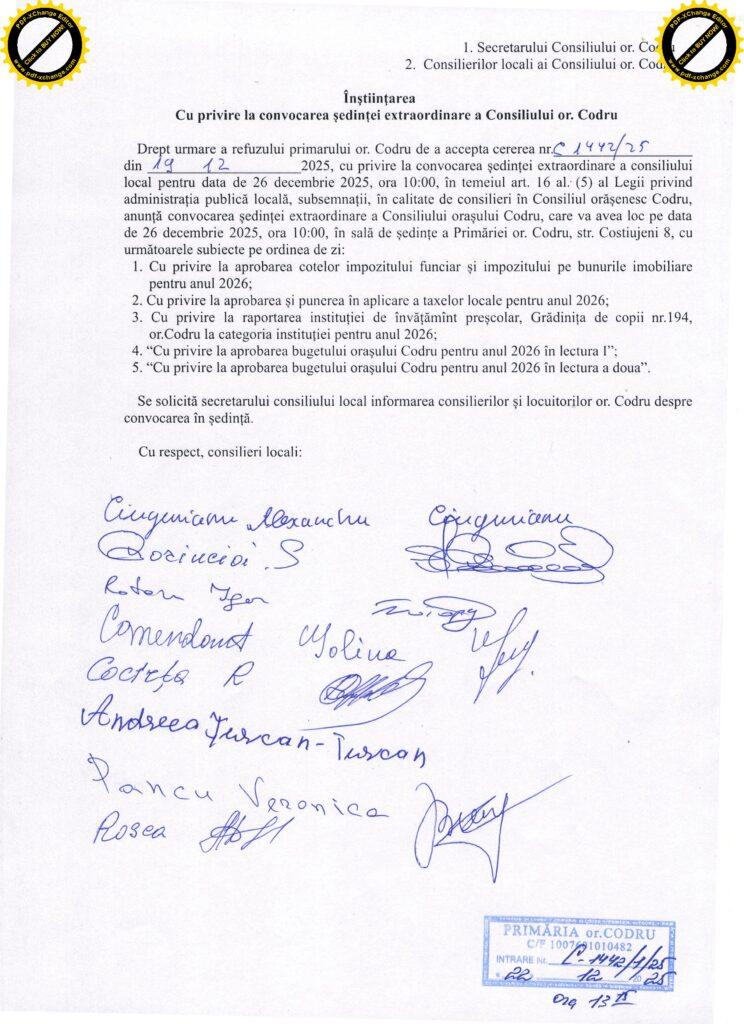 PDF-XChange Editor
Click to BUY NOW!
www.pdf-xchange.com
PDF-XChange Editor
Click to BUY NOW!
www.pdf-xchange.com
1. Secretarului Consiliului or. Codru
2. Consilierilor locali ai Consiliului or. Codru
Înștiințarea
Cu privire la convocarea ședinței extraordinare a Consiliului or. Codru
Drept urmare a refuzului primarului or. Codru de a accepta cererea nr. C 1442/25
din 19 12 2025, cu privire la convocarea ședinței extraordinare a consiliului
local pentru data de 26 decembrie 2025, ora 10:00, în temeiul art. 16 al. (5) al Legii privind
administrația publică locală, subsemnații, în calitate de consilieri în Consiliul orășenesc Codru,
anunță convocarea ședinței extraordinare a Consiliului orașului Codru, care va avea loc pe data
de 26 decembrie 2025, ora 10:00, în sală de ședințe a Primăriei or. Codru, str. Costiujeni 8, cu
următoarele subiecte pe ordinea de zi:
1. Cu privire la aprobarea cotelor impozitului funciar și impozitului pe bunurile imobiliare
pentru anul 2026;
2. Cu privire la aprobarea și punerea în aplicare a taxelor locale pentru anul 2026;
3. Cu privire la raportarea instituției de învățămînt preșcolar, Grădinița de copii nr.194,
or.Codru la categoria instituției pentru anul 2026;
4. “Cu privire la aprobarea bugetului orașului Codru pentru anul 2026 în lectura I”;
5. “Cu privire la aprobarea bugetului orașului Codru pentru anul 2026 în lectura a doua”.
Se solicită secretarului consiliului local informarea consilierilor și locuitorilor or. Codru despre
convocarea în ședință.
Cu respect, consilieri locali:
Alexandru
S
Igor
Comendant
R
Andreea Țurcan-Turcan
Pancu Veronica
Rosca
PRIMĂRIA or.CODRU
C/F 1007601010482
INTRARE Nr. C-1442/1/25
"22" 12 2025
Ora 13 15